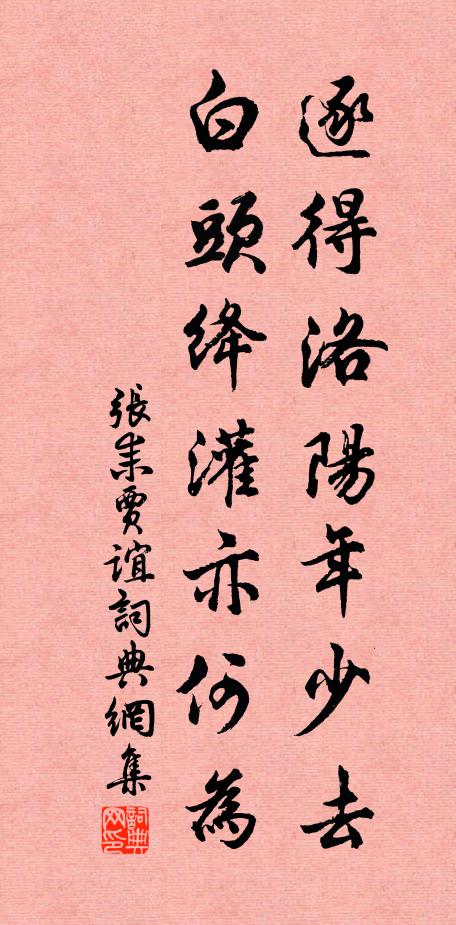 逐得洛陽年少去
白頭絳灌亦何為
張耒賈誼詞典網集
詞典网印